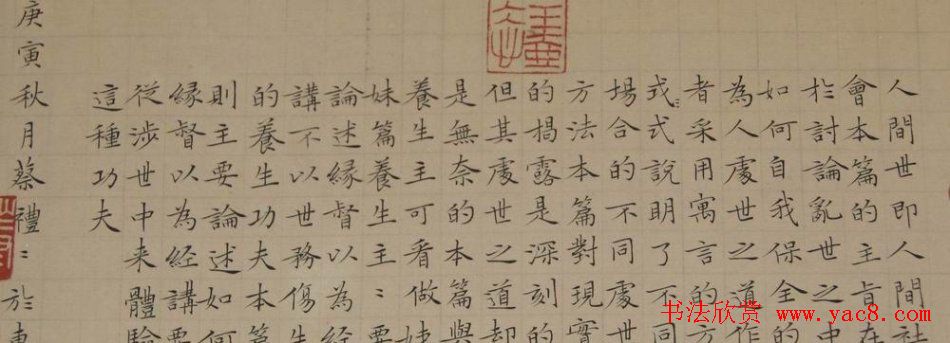 人間世即人間社
會本篇的主旨在
於討論亂世之中
如何自我保全的
為人處世之道作
者采用寓言的方
式:式說明了不同
場合的不同處世
方法本篇對現實
的揭露是深刻的
但其處世之道却
是無奈的本篇與
養生主可看做姊
妹篇養生主:要
論述緣督以為經
講不以世務傷生
的養生功夫本篇
則主要論述如何
緣督以為經講要
從涉世中来體驗
這種功夫
庚寅秋月蔡禮:於東
书法欣赏
www.yac8.com